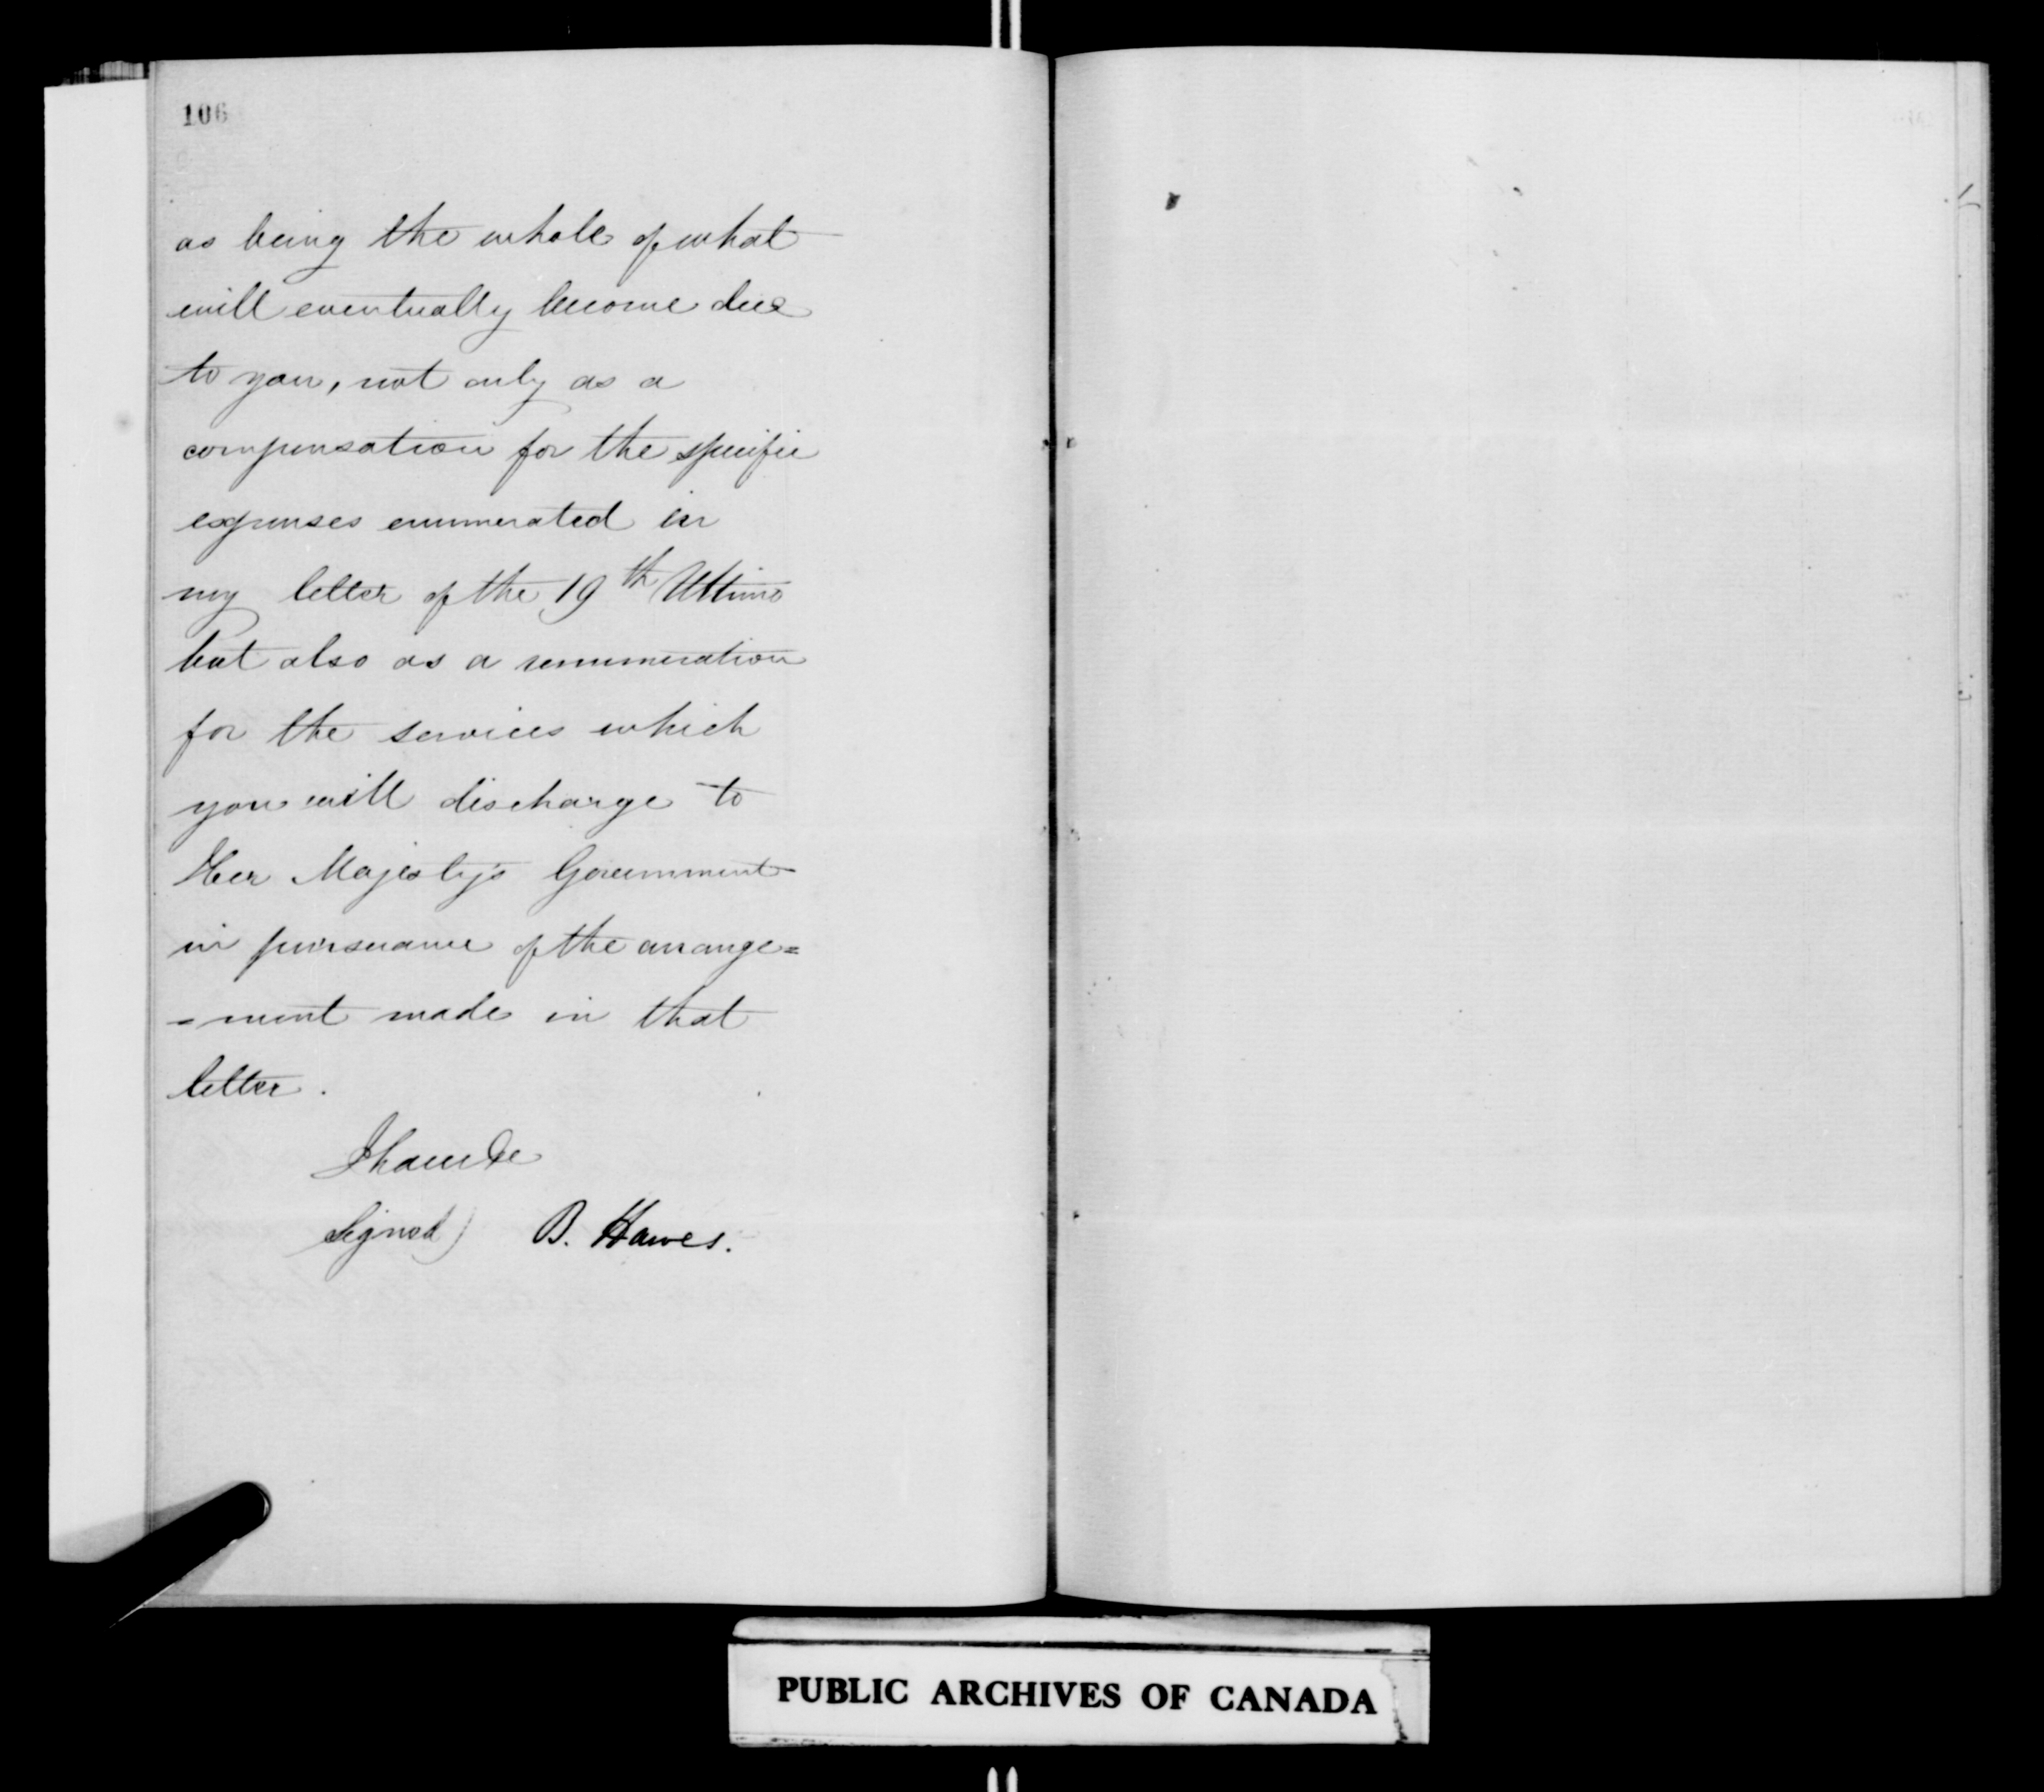 106
as being the whole of what
will eventually become due
to you, not only as a
compensation for the specific
expenses enumerated in
my letter of the 19th Ultimo
but also as a remuneration
for the services which
you will discharge to
Her Majesty's Government
in pursuance of the arrange=
=ment made in that
letter.
I have &c
Signed) B. Hawes.
PUBLIC ARCHIVES OF CANADA